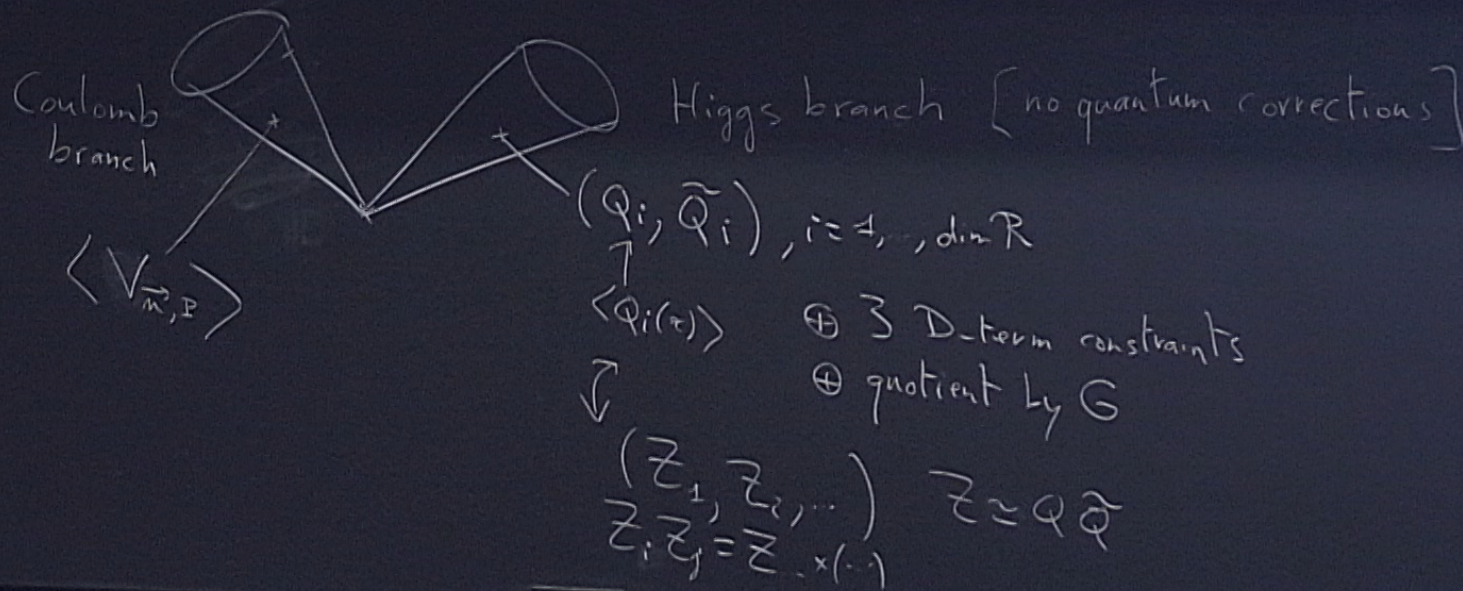 Coulomb
branch
Higgs branch [no quantum corrections]
(Q_i, Q̃_i), i=1,..., dim R
↑
<V_{\vec{m},P}>
<Q_i(x)>
⊕ 3 D-term constraints
⊕ quotient by G
↕
(Z_1, Z_2, ...) Z ≃ Q Q̃
Z_i Z_j = Z_.. × (...)